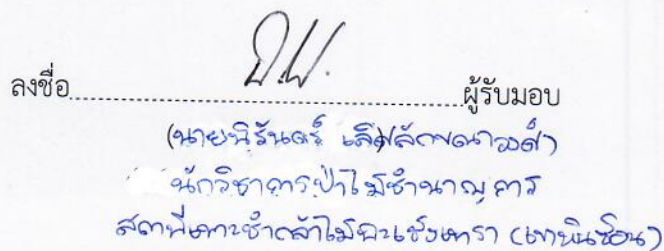 ลงชื่อ........................................ผู้รับมอบ
(นายนิรันดร์
นักวิชาการป่าไม้ชำนาญการ
สถานีเพาะชำกล้าไม้ฉะเชิงเทรา (เขาหินซ้อน)